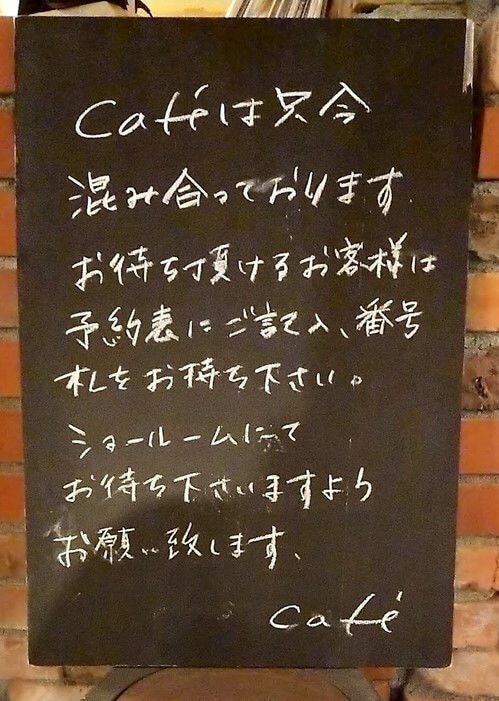 Caféは只今
混み合っております.
お待ち頂けるお客様は
予約表にご記入、番号
札をお持ち下さい。
ショールームにて
お待ち下さいますよう
お願い致します、
Café